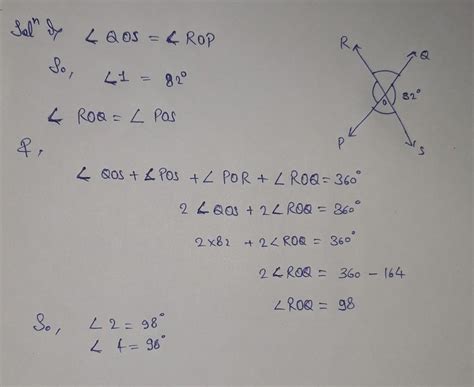 Solⁿ
∠QOS = ∠ROP
So, ∠1 = 82°
∠ROQ = ∠POS
&,
∠QOS + ∠POS + ∠POR + ∠ROQ = 360°
2∠QOS + 2∠ROQ = 360°
2×82 + 2∠ROQ = 360°
2∠ROQ = 360 - 164
∠ROQ = 98
So, ∠2 = 98°
∠4 = 98°
R
Q
O
82°
P
S